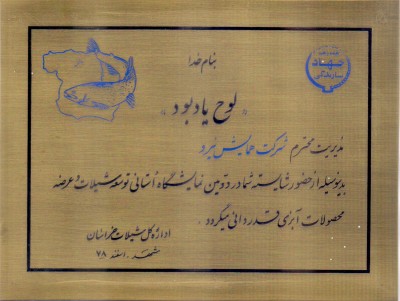 بنام خدا
جهاد
سازندگی
« لوح یادبود »
مدیریت محترم شرکت همایش نبرد
بدینوسیله از حضور شایسته شما در دومین نمایشگاه استانی توسعه شیلات و عرضه
محصولات آبزی قدردانی میگردد .
اداره کل شیلات خراسان
مشهد . اسفند ۷۸